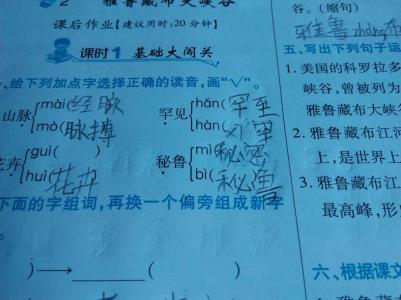 2 雅鲁藏布大峡谷
课后作业【建议用时:20分钟】
课时1 基础大闯关
一、给下列加点字选择正确的读音,画“√”。
山脉 mài 经脉
mò 脉搏
罕见 hǎn 罕至
hàn
花卉 guì( )
huì 花卉
秘鲁 mì 秘密
bì 秘鲁
下面的字组词,再换一个偏旁组成新字
。
( )→ ( )
谷。(缩句)
雅鲁zhàng布
五、写出下列句子运
1. 美国的科罗拉多
峡谷,曾被列为
雅鲁藏布大峡
2. 雅鲁藏布江河
上,是世界上
3. 雅鲁藏布江
最高峰,形
六、根据课文